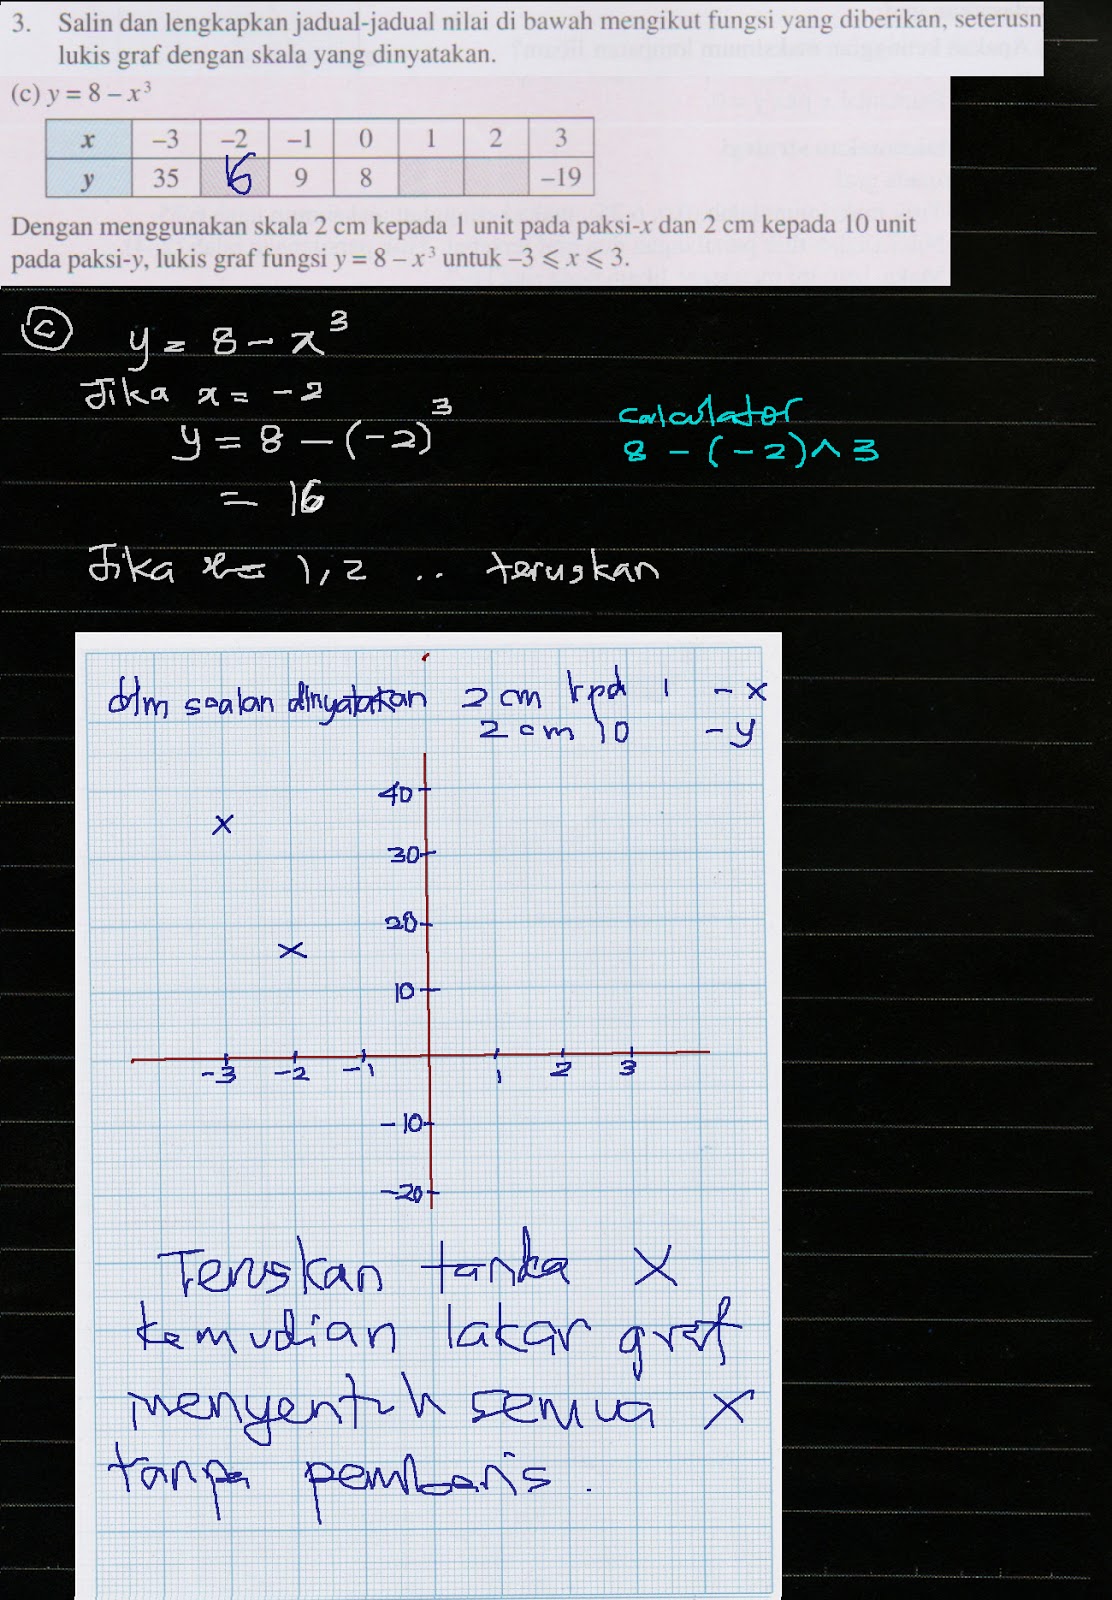 3. Salin dan lengkapkan jadual-jadual nilai di bawah mengikut fungsi yang diberikan, seterusn
lukis graf dengan skala yang dinyatakan.
(c) y = 8 – x³
x –3 –2 –1 0 1 2 3
y 35 16 9 8 –19
Dengan menggunakan skala 2 cm kepada 1 unit pada paksi-x dan 2 cm kepada 10 unit
pada paksi-y, lukis graf fungsi y = 8 – x³ untuk –3 ⩽ x ⩽ 3.
(c) y = 8 - x³
Jika x = -2
y = 8 - (-2)³
= 16
calculator
8 - (-2)^3
Jika x = 1, 2 .. teruskan
dlm soalan dinyatakan 2 cm kpd 1 - x
2 cm 10 - y
40
30
20
10
-3 -2 -1 1 2 3
-10
-20
Teruskan tanda X
kemudian lakar graf
menyentuh semua X
tanpa pembaris.